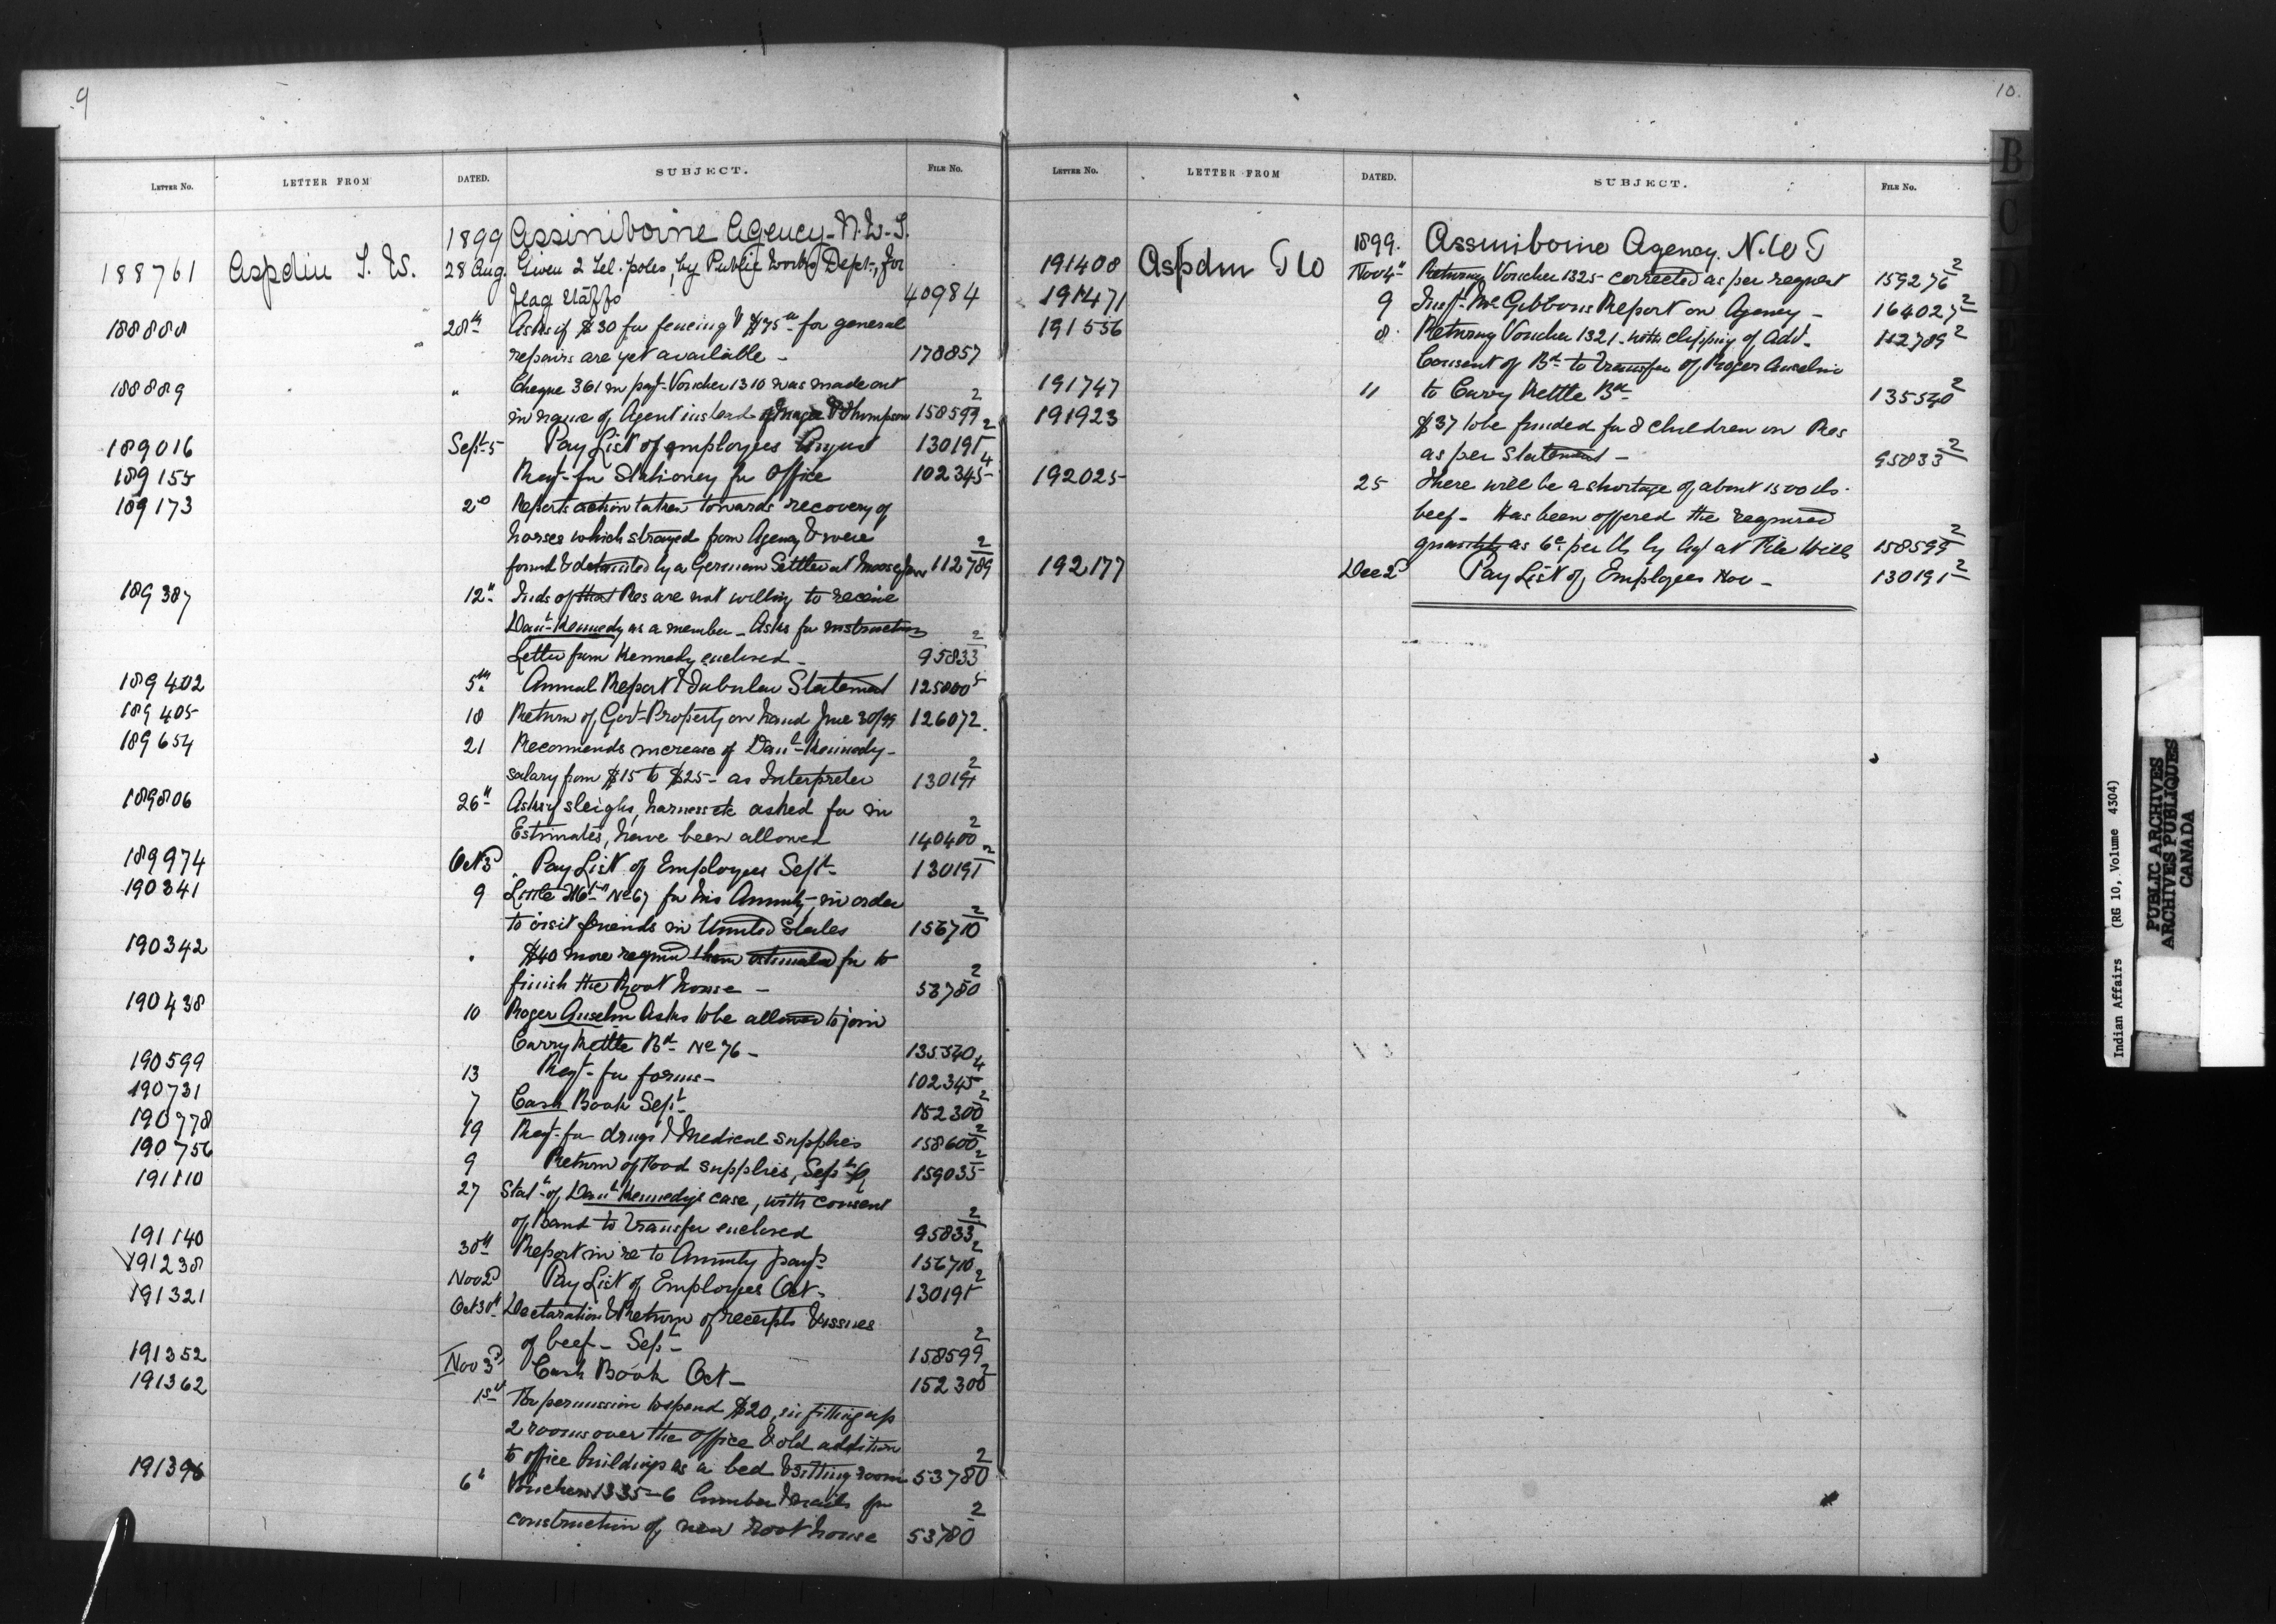 9
LETTER NO. LETTER FROM DATED. SUBJECT. FILE NO.
1899 Assiniboine Agency - N.W.T.
188761 Aspdin T. W. 28 Aug. Given 2 Tel. poles, by Public Works Dept, for
flag staffs 40984
188888 28th Asks if $30 for fencing & $75 for general
repairs are yet available - 178857
188889 " Cheque 361 in payt Voucher 1310 was made out
in name of Agent instead of Thompson 158599 2
189016 Sept 5 Pay List of employees August 130191 2
189155 Reqt for Stationery for Office 102345 4
189173 2d Reports action taken towards recovery of
horses which strayed from Agency & were
found & detained by a German Settler at Moosejaw 112789 2
189387 12th Inds of that Res are not willing to receive
Danl Kennedy as a member - Asks for instructions
Letter from Kennedy enclosed - 95833 2
189402 5th Annual Report & Tabular Statement 125800 5
189405 18 Return of Govt Property on hand June 30/99 126072.
189654 21 Recommends increase of Danl Kennedy
salary from $15 to $25 - as Interpreter 130191 2
189806 26th Asks if sleighs, harness etc asked for in
Estimates, have been allowed 140400 2
189974 Oct 3d Pay List of Employees Sept 130191 2
190341 9 Little No 67 for his Annuity in order
to visit friends in United States 156710 2
190342 " $40 more required than estimated for to
finish the Root house - 53780 2
190438 10 Roger Anselm Asks to be allowed to join
Carry Kettle Bd No 76 - 135540
190599 13 Reqt for forms - 102345 4
190731 7 Cash Book Sept 152300 2
190778 19 Reqt for drugs & Medical supplies 158600 2
190756 9 Return of Food supplies, Sept 159035 2
191110 27 Statt of Danl Kennedy's case, with consent
of Band to transfer enclosed 95833 2
191140 30th Report in re to Annuity payt 156710 2
191238 Nov 2d Pay List of Employees Oct - 130191 2
191321 Oct 30th Declaration & Return of receipts & issues
of beef - Sept - 158599 2
191352 Nov 3d Cash Book Oct - 152300 2
191362 1st For permission to spend $20, in fitting up
2 rooms over the office & old addition
to office buildings as a bed & sitting room 53780 2
191396 6th Vouchers 1335-6 Lumber & nails for
construction of new root house 53780 2
10.
LETTER NO. LETTER FROM DATED. SUBJECT. FILE NO.
1899. Assiniboine Agency. N.W T
191408 Aspdin T W Nov 4th Returng Voucher 1325 corrected as per request 159276 2
191471 9 Inspr McGibbons Report on Agency - 164027 2
191556 8 Returng Voucher 1321 with clipping of Advt 112789 2
Consent of Bd to transfer of Roger Anselm
191747 11 to Carry Kettle Bd 135540 2
191923 $37 to be funded for 8 children on Res
as per Statement - 95833 2
192025 25 There will be a shortage of about 1500 lbs
beef - Has been offered the required
quantity as 6c per lb by Agt at File Hills 158599 2
192177 Dec 2d Pay List of Employees Nov - 130191 2
B
C
Indian Affairs (RG 10, Volume 4304)
PUBLIC ARCHIVES
ARCHIVES PUBLIQUES
CANADA